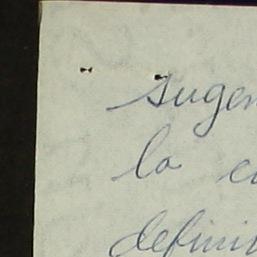 sugen
la
defini